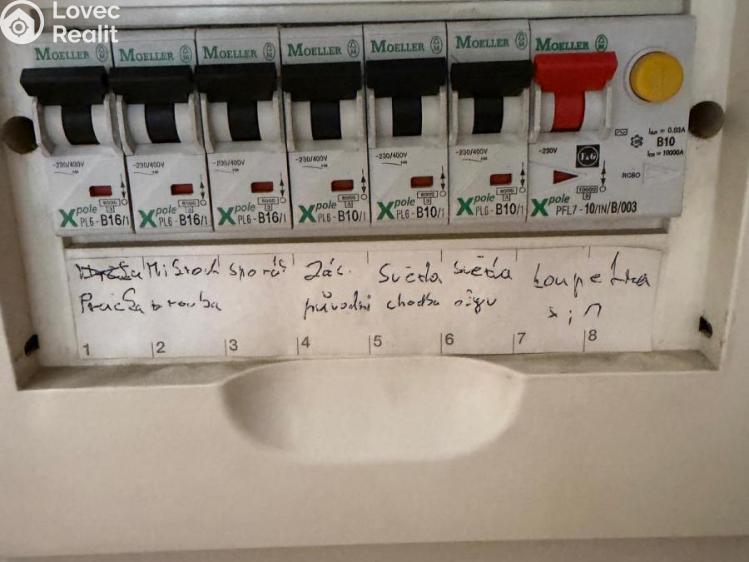 Lovec
Realit
MOELLER MOELLER MOELLER MOELLER MOELLER MOELLER MOELLER
I∆n = 0.03A
B10
Icn = 10000A
~230/400V ~230/400V ~230/400V ~230/400V ~230/400V ~230/400V ~230V F&G
RCBO
6000 6000 6000 6000 6000 6000 10000
3 3 3 3 3 3 3
Xpole PL6-B16/1 Xpole PL6-B16/1 Xpole PL6-B16/1 Xpole PL6-B10/1 Xpole PL6-B10/1 Xpole PL6-B10/1 Xpole PFL7-10/1N/B/003
sporák Zás. Světla světla koupelna
Pračka trouba původní chodba
1 2 3 4 5 6 7 8